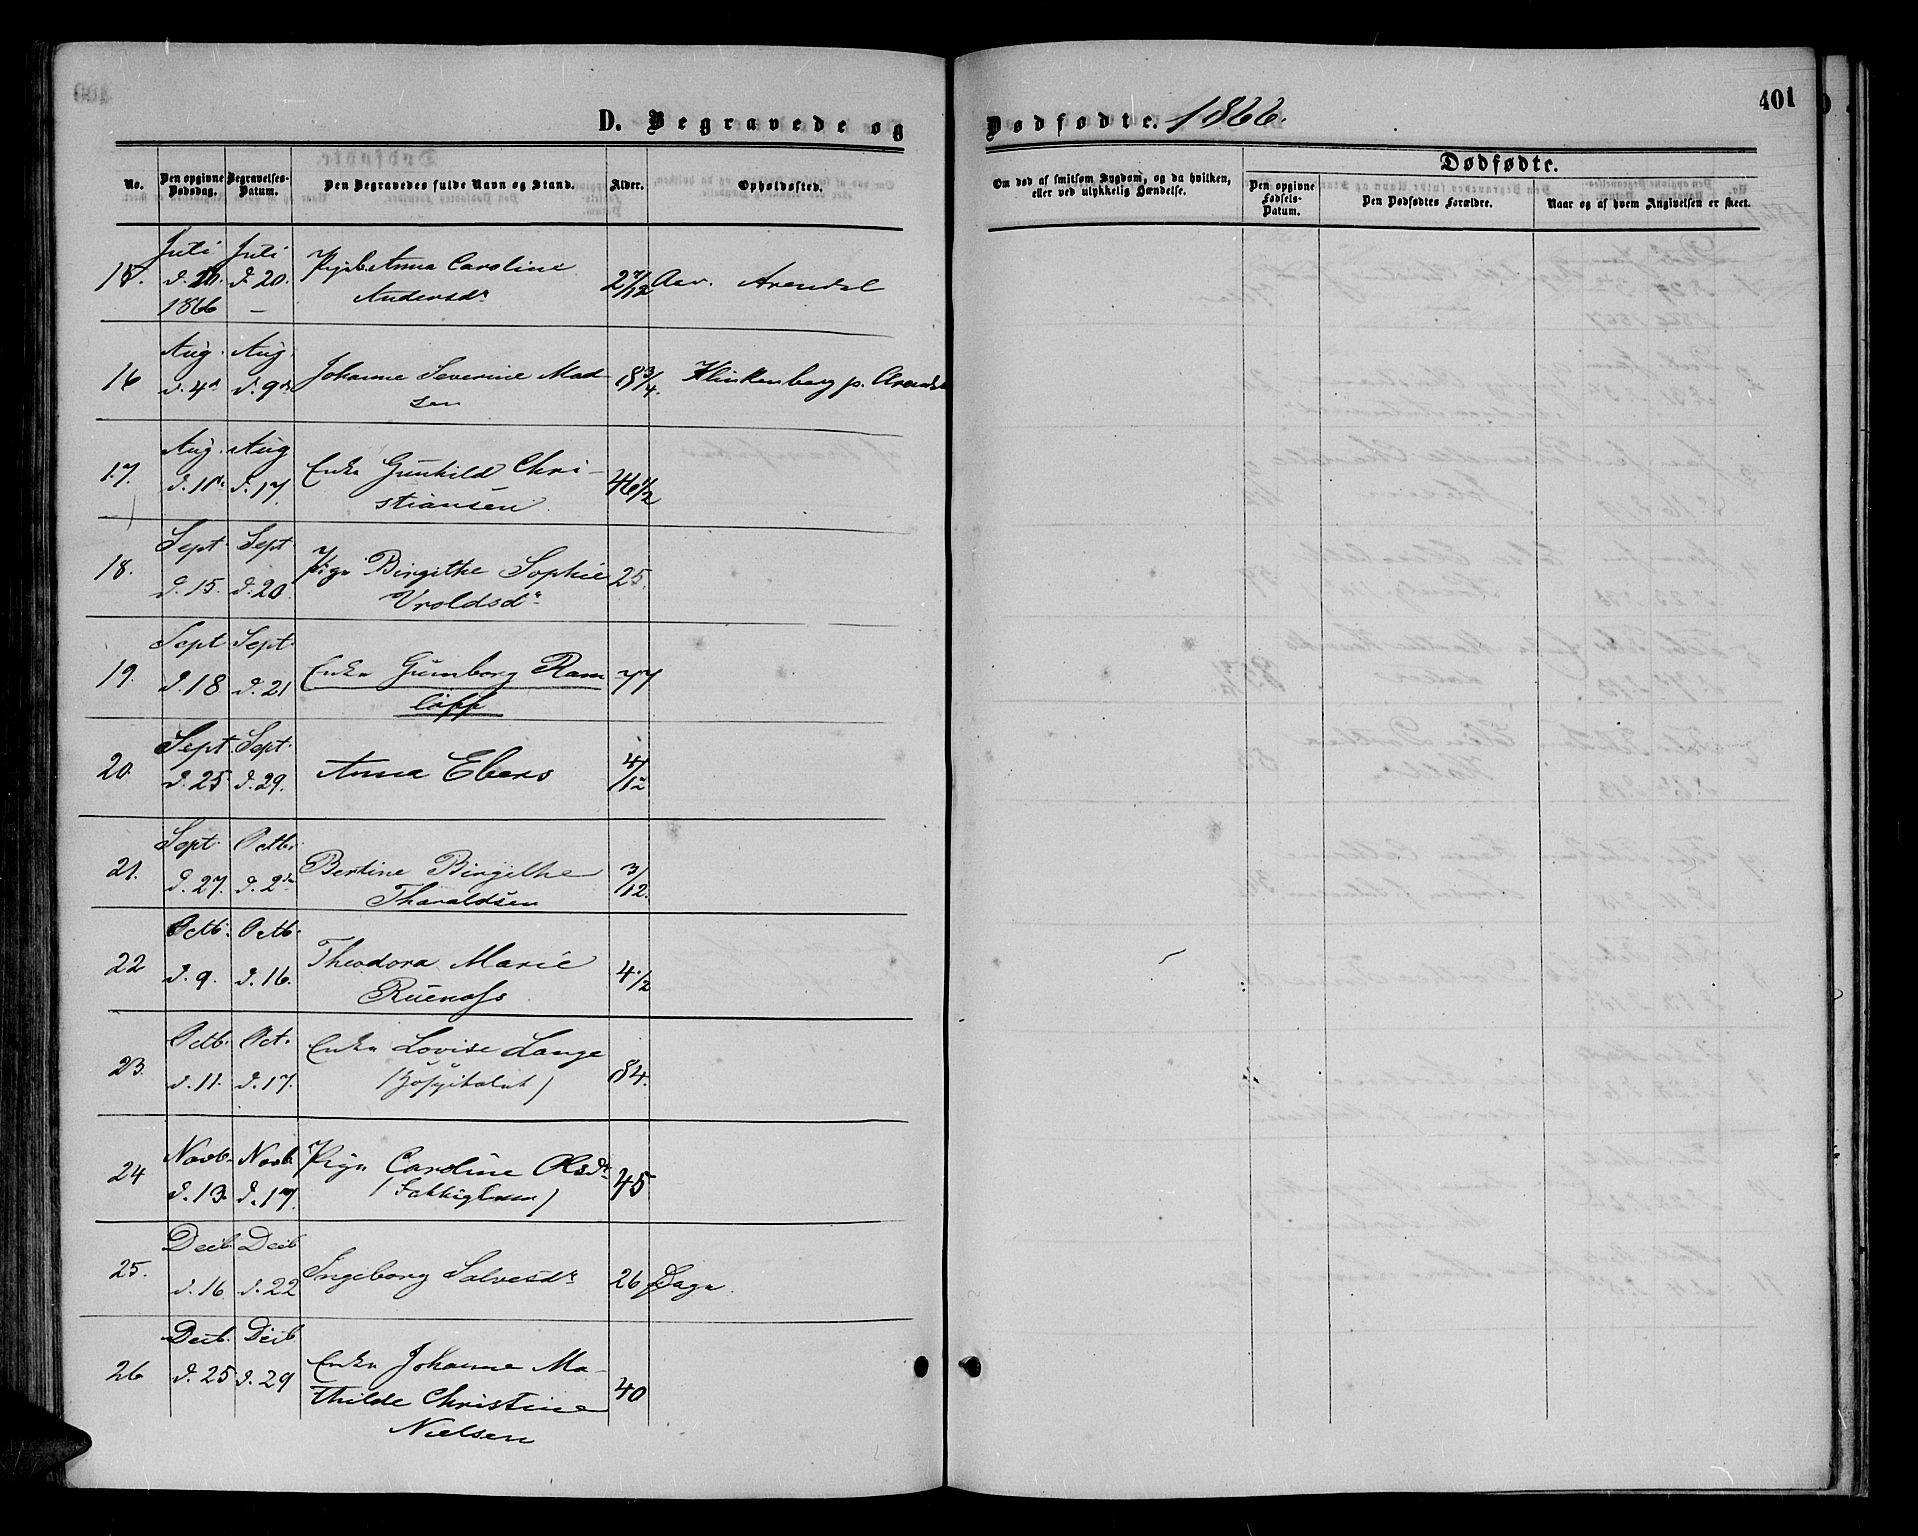 D. Begravede og
Dødfødte. 1866.
401
No.
Den opgivne Dødsdag.
Begravelses-Datum.
Den Begravedes fulde Navn og Stand.
Alder.
Opholdssted.
Om død af smitsom Sygdom, og da hvilken, eller ved ulykkelig Hændelse.
Dødfødte.
Den opgivne Fødsels-Datum.
Den Dødfødtes Forældre.
Naar og af hvem Angivelsen er skeet.
15. Juli d. 20. 1866 Juli d. 20. — Anna Caroline
Andersdr 2 7/12 Arendal
16 Aug. d. 4de Aug. d. 9de Johanne Severine Mad-
sen 18 3/4. Klinkenberg p. Arendal
17. Aug. d. 11te Aug d. 17. Enke Gunhild Chri-
stiansen. 46 1/2
18. Sept. d. 15. Sept d. 20. Pige Birgithe Sophie
Vroldsdr 25.
19. Sept d. 18 Sept. d. 21 Enke Gumborg Ram
löff 77
20. Sept. d. 25 Sept. d. 29. Anna Ebers 4/12
21. Sept. d. 27. Octbr d. 2den Bertine Birgithe
Tharaldsen 3/12.
22 Octb. d. 9. Octb. d. 16. Theodora Marie
Ruenæss 4 1/2
23. Octb. d. 11. Oct. d. 17. Enke Lovise Lange
(Hospitalet) 84.
24 Novb. d. 13. Novb. d. 17. Pige Caroline Olsdr
(Fattiglem) 45
25. Decb. d. 16 Decb d. 22 Ingeborg Salvesdr 26
26 Decb. d. 25 Decb d. 29 Enke Johanne Ma-
thilde Christine 40
Nielsen